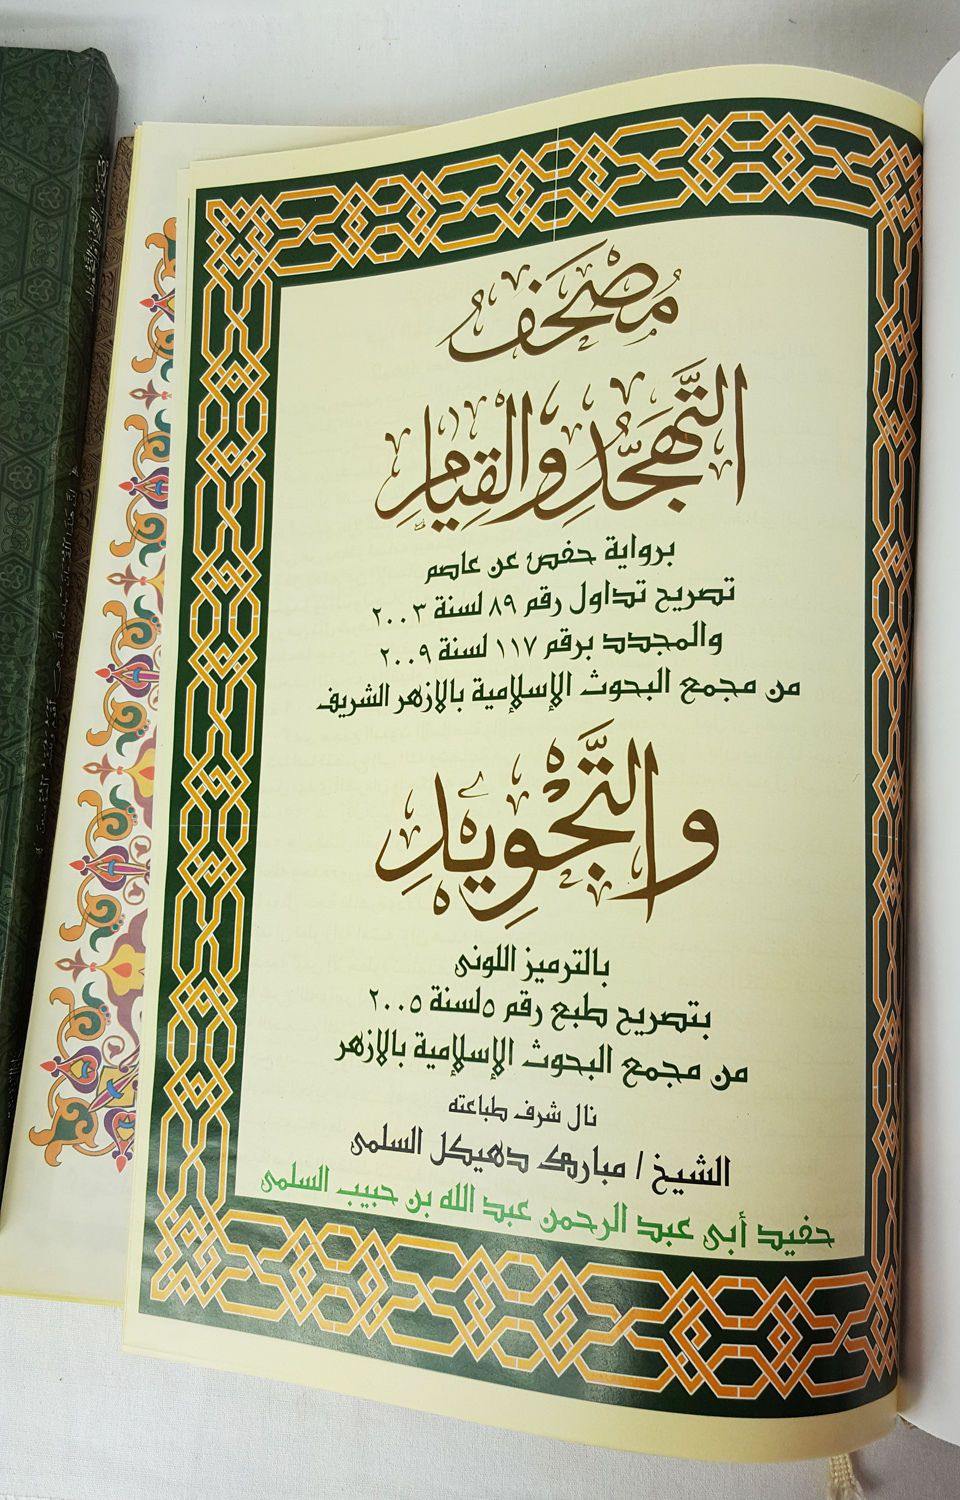 مُصْحَفُ
التَّهَجُّدِ وَالْقِيَامِ
برواية حفص عن عاصم
تصريح تداول رقم ٨٩ لسنة ٢٠٠٣
والمجدد برقم ١١٧ لسنة ٢٠٠٩
من مجمع البحوث الإسلامية بالازهر الشريف
وَالتَّجْوِيدِ
بالترميز اللونى
بتصريح طبع رقم ٥ لسنة ٢٠٠٥
من مجمع البحوث الإسلامية بالازهر
نال شرف طباعته
الشيخ / مبارك دهيكل السلمى
حفيد أبى عبد الرحمن عبد الله بن حبيب السلمى